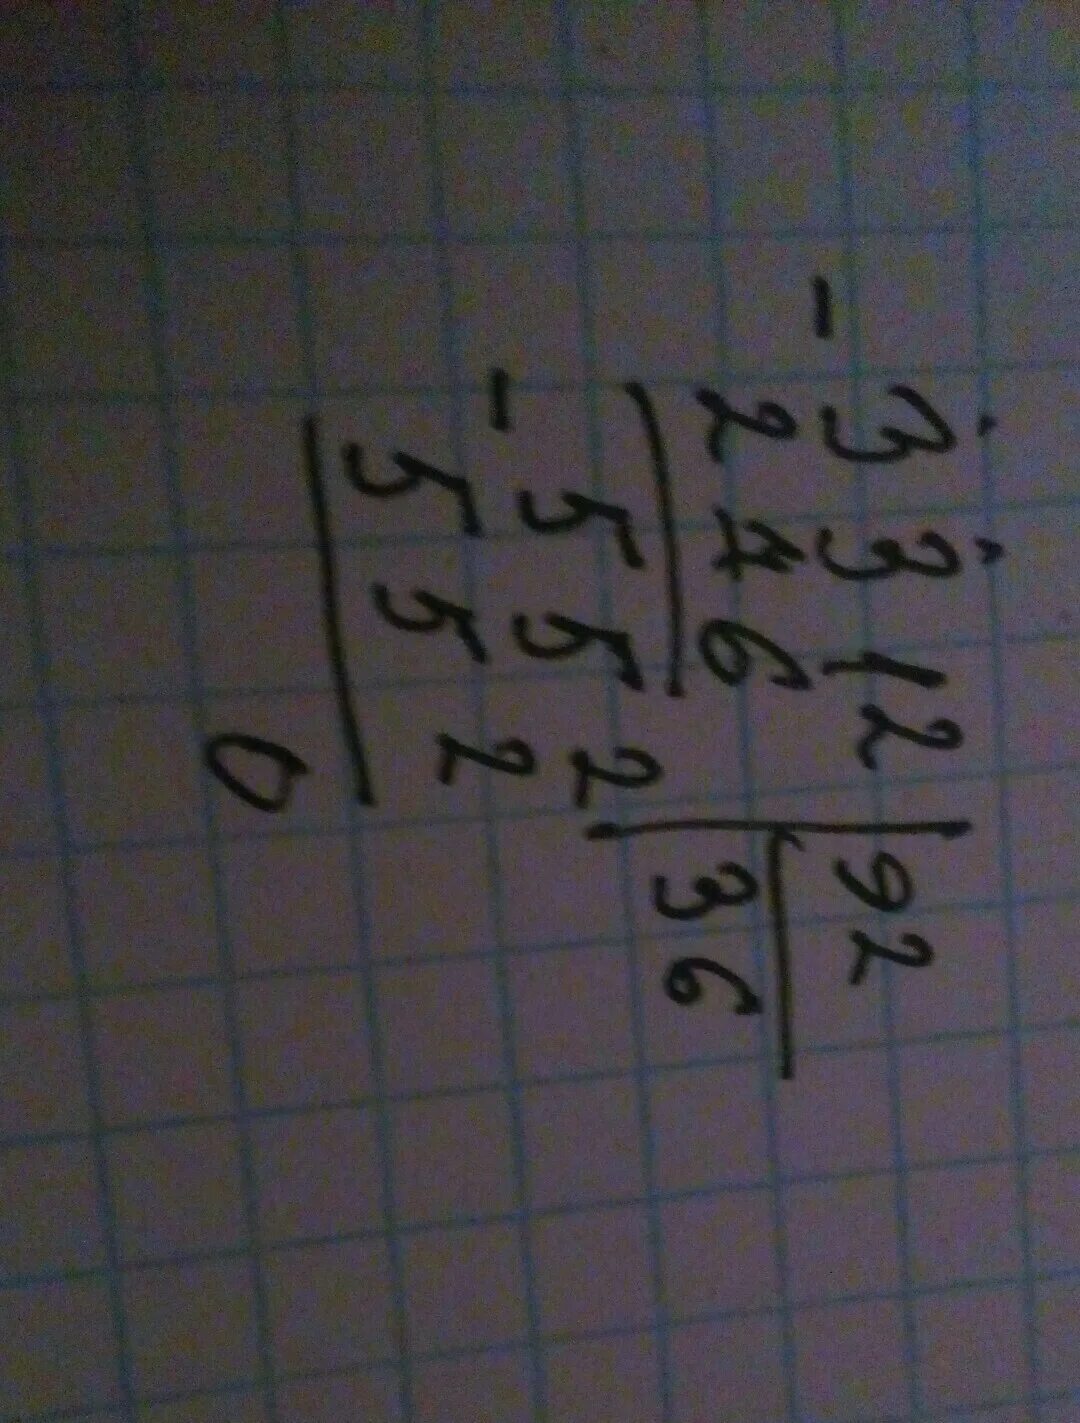 - 3312 | 92
276 | 36
- 552
552
0